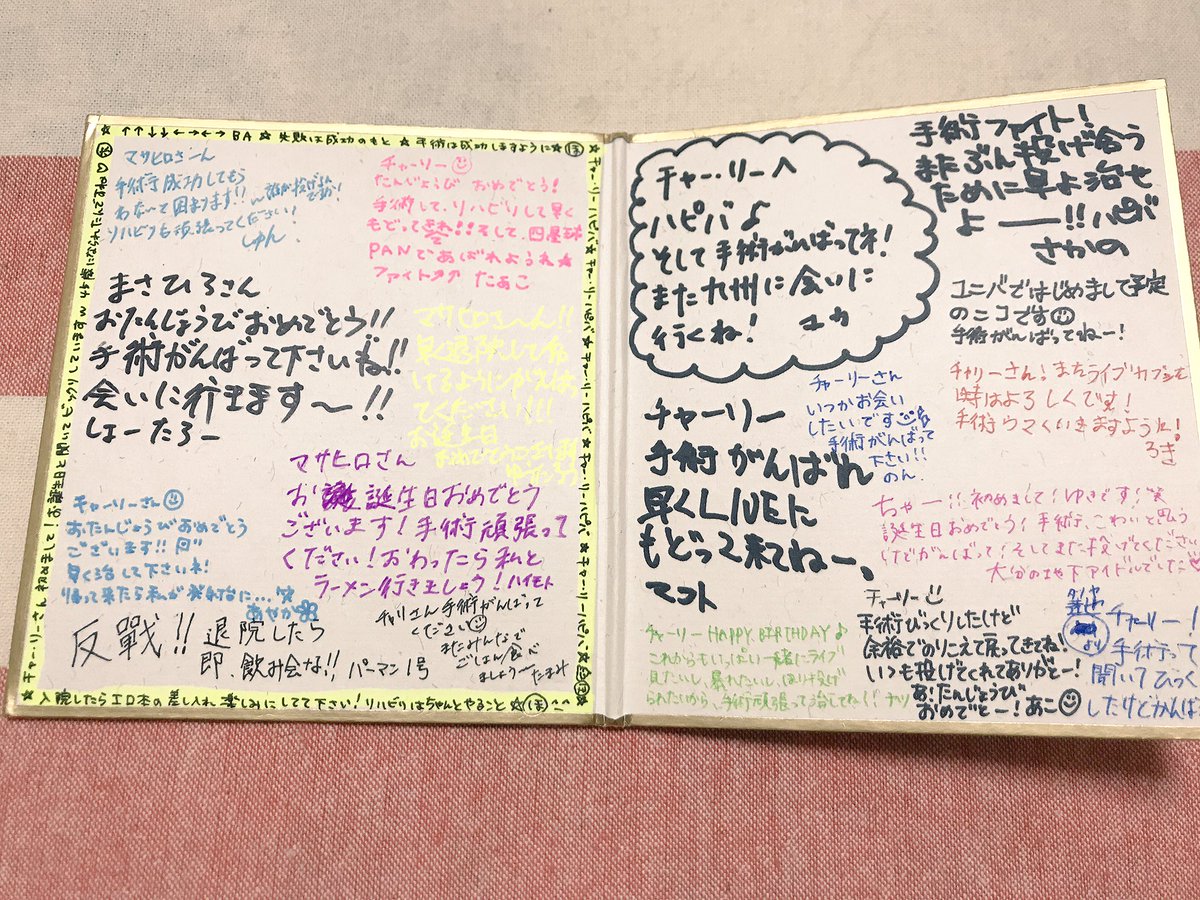 ☆ ↑↑↓↓←→←→ BA ☆ 失敗は成功のもと ☆ 手術は成功しますように☆
マサヒロさーん
手術成功してもら
わないと困ります!!
リハビリも頑張ってください!
しゅん
チャーリー
たんじょうび おめでとう!
手術して、リハビリして早く
もどって
そして、四星球
PANであばれようね☆
ファイト
たぁこ
まさひろさん
おたんじょうびおめでとう!!
手術がんばって下さいね!!
会いに行きます〜!!
しょーたろー
マサヒロさ〜ん!!
早く退院して
お誕生日
マサヒロさん
お誕生日おめでとう
ございます!手術頑張って
ください!おわったら私と
ラーメン行きましょう!ハイモト
チャーリーさん
おたんじょうびおめでとう
ございます!!
早く治して下さいね!
帰って来たら私が発射台に...
あやか
反戰!!
退院したら
即、飲み会な!! パーマン1号
チャリさん手術がんばって
ください
またみんなで
ごはん食べ
ましょう〜 たまみ
入院したらエロ本の差し入れ楽しみにしてて下さい!リハビリはちゃんとやること☆
☆チャー・リー ハピバ☆チャー・リーハピバ☆チャー・リーハピバ☆チャー・リーハピバ
チャー・リーへ
ハピバ♪
そして手術がんばってネ!
また九州に会いに
行くね! ユカ
手術ファイト!
またぶん投げ合う
ために早よ治せ
よ ー!!ハピバ
さかの
ユニバではじめまして予定
のニコです
手術がんばってねー!
チャーリーさん
いつかお会い
したいです
手術がんばって
下さい!!
のん。
チャリーさん!またライブカブった
時はよろしくです!
手術ウマくいきますように!
ろき
チャーリー
手術がんばれ
早くLIVEに
もどって来てねー、
マコト
ちゃー!!初めまして!ゆきです!
誕生日おめでとう!手術、こわいと思う
けどがんばって!そしてまた投げてください
大分の地下アイドルでした♡
チャーリー HAPPY BIRTHDAY♪
これからもいっぱい一緒にライブ
見たいし、暴れたいし、ほり投げ
られたいから、手術頑張って治してね!ナツ
チャーリー
手術びっくりしたけど
余裕でのりこえて戻ってきてね!
いつも投げてくれてありがとー!
あ!たんじょうび
おめでとー!あこ
より
チャーリー!
手術って
聞いてびっく
したけどがんば